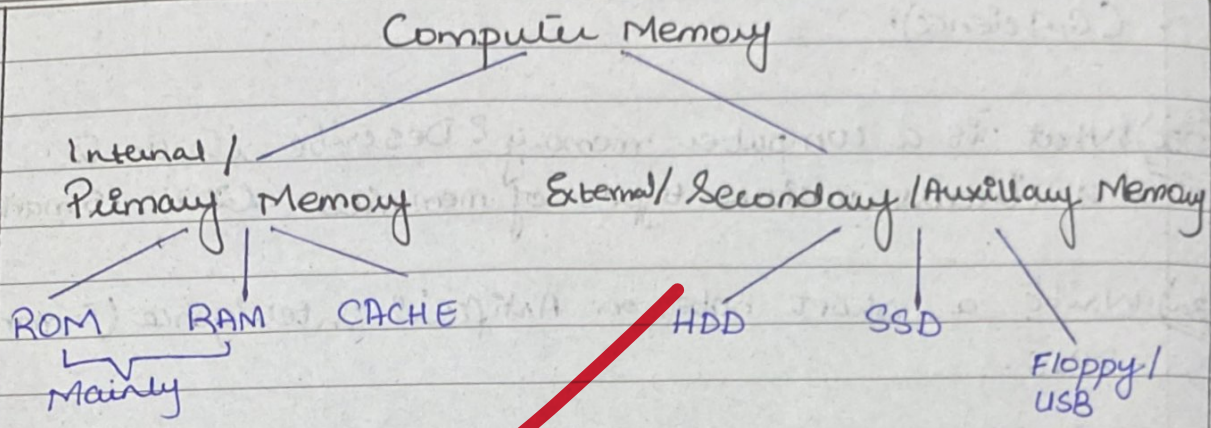 Computer Memory
Internal /
Primary Memory
External/ Secondary /Auxillary Memory
ROM RAM CACHE HDD SSD
Mainly
Floppy/
USB